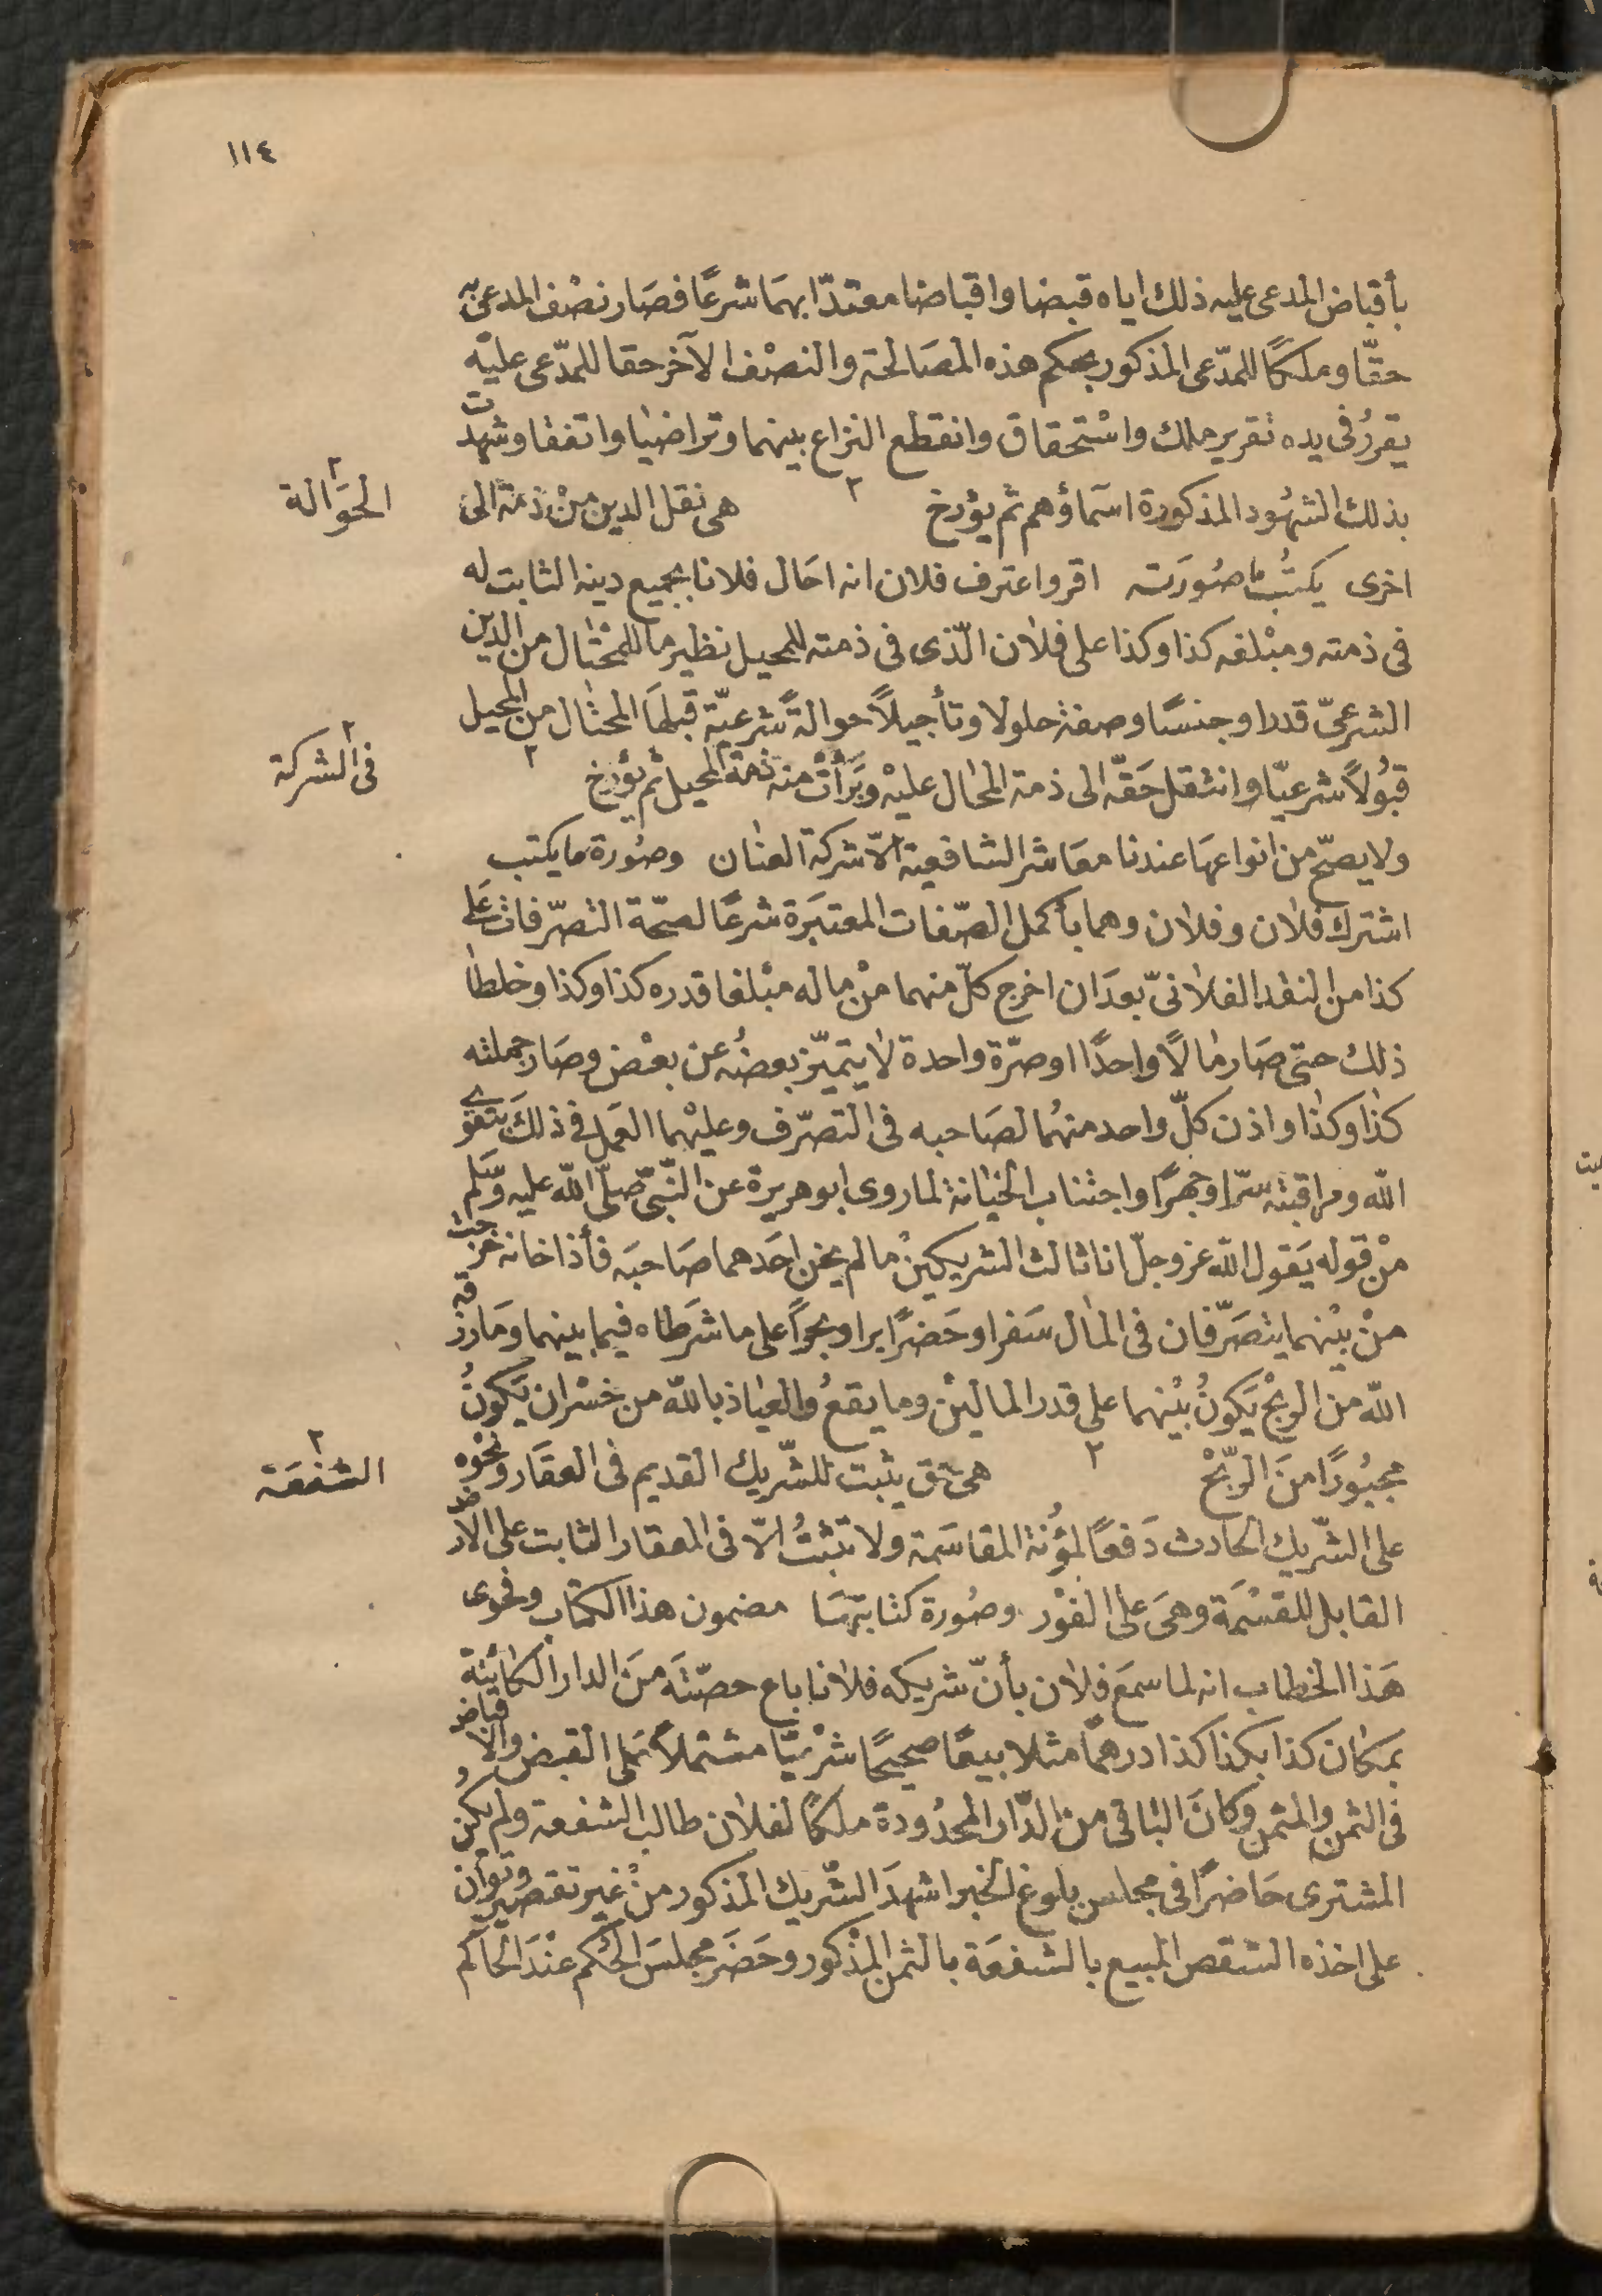 ١١٤
بأقباض المدعى عليه ذلك اياه قبضا واقباضا معتدّا بهمَا شرعًا فصَار نصْف المدعى به
حقّا وملكًا للمدّعى المذكور بحكم هذه المصَالحة والنصْف الآخر حقا للمدّعى عليْه
يقررُ فى يده تقرير ملك واسْتحقاق وانقطع النزاع بينهما وتراضيٰا واتفقا وشهدت
بذلك الشهُود المذكورة اسمَاؤهم ثم يؤرخ ٢ هى نقل الدين منْ ذمّة الى
الحَوالة ٢
اخرى يكتبُ ما صُورَته اقر واعترف فلان انه احَال فلانا بجميع دينه الثابت له
فى ذمته ومبْلغه كذا وكذا على فلاٰن الّذى فى ذمته للمحيل نظير ما للمحْتٰال من الدين
الشرعىّ قدرا وجنسًا وصفة حلولا وتأجيلاً حوالةً شرعيّة قبلهَا المحتٰال من المحيل
قبُولاً شرعيّا وانتقل حَقّه الى ذمة المحٰال عليْه وَبَرأتْ منه ذمة المحيل ثم يؤرخ ٢
فى الشركة ٢
ولا يصحّ من انواعهَا عندنا معَاشر الشافعية الاّ شركة العنٰان وصُورة ما يكتب
اشترك فلاٰن وفلاٰن وهما بأكمل الصّفات المعتبَرة شرعًا لصحّة التصرّفات على
كذا من النقد الفلاٰنىّ بعدَ ان اخرج كلّ منهما منْ ماله مبْلغا قدره كذا وكذا وخلطٰا
ذلك حتى صَار مٰالًا واحدًا او صرّة واحدة لاٰ يتميّز بعضُه عن بعْض وصَار جملته
كذٰا وكذٰا واذن كلّ واحد منهُما لصَاحبه فى التصرّف وعليْهما العمَل فى ذلكَ بتقوى
الله ومراقبته سرّا وجهرًا واجتناب الخيٰانة لما روى ابو هريرة عن النّبىّ صلّى الله عليه وسَلم
منْ قوله يَقول الله عز وجلّ انا ثالث الشريكينْ ما لم يخن احَدهما صَاحبَه فأذا خانه خرجت
منْ بيْنهما يتصَرّفان فى المٰال سَفرا وحَضرًا برا وبحرًا على ما شرَطاه فيما بينهما ومَا رزقه
الله منَ الربحْ يَكونُ بيْنهما على قدر المٰاليْن وما يقعُ والعيٰاذ بالله من خسْران يَكونُ
مجبُورًا منَ الربّحْ ٢ هى حَق يثبت للشّريك القديم فى العقَار ونحْوه
الشفعَة ٢
على الشّريك الحَادث دَفعًا لمؤُنة المقاسَمة ولا تثبتُ الاّ فى العقار الثابت على الارض
القابل للقسْمَة وهىَ على الفوْر وصُورة كتابتهَا مضمون هذا الكتٰاب وفحوى
هَذا الخطاب انه لما سمعَ فلاٰن بأنّ شريكه فلاٰنا باع حصّتَه منَ الدار الكائنَة
بمكَان كذا بكذا كذا درهمًا مثلا بيعًا صحيحًا شرْعيّا مشتملاً على القبض والاقباض
فى الثمن والمثمن وكانَ البٰاقى من الدّار المحدُودة ملكًا لفلاٰن طالب الشفعة ولم يكن
المشترى حَاضرًا فى مجلس بلوغ الخبر اشهدَ الشّريك المذكور منْ غير تقصير وتوٰان
على اخذه الشقص المبيع بالشفعَة بالثمن المذكور وحَضَر مجلسَ الحكم عنْدَ الحاكم